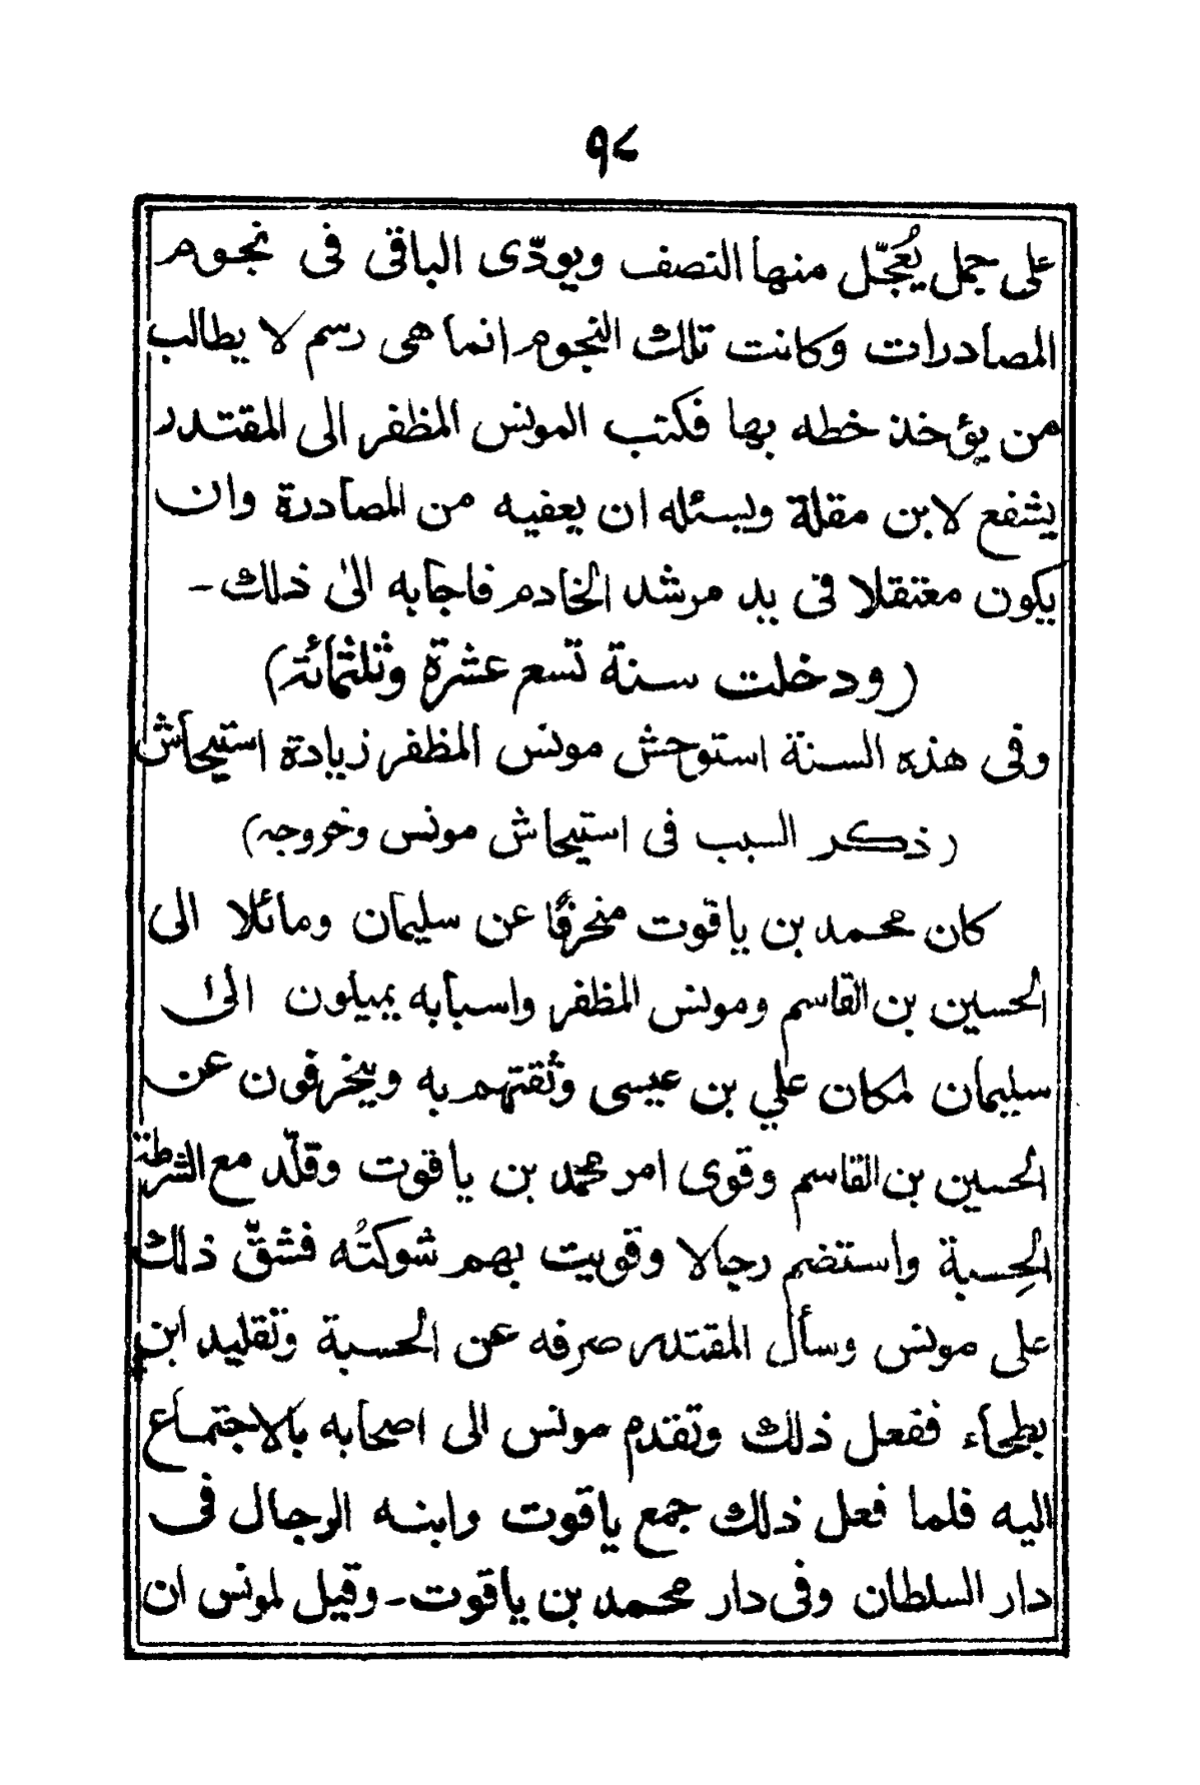 ٩٤
على جمل يُعجّل منها النصف ويودّى الباقى فى نجوم
المصادرات وكانت تلك النجوم انما هى رسم لا يطالب
من يؤخذ خطه بها فكتب المونس المظفر الى المقتدر
يشفع لابن مقلة ويسئله ان يعفيه من المصادرة وان
يكون معتقلا فى يد مرشد الخادم فاجابه الىٰ ذلك -
(ودخلت سنة تسع عشرة وثلثمائة)
وفى هذه السنة استوحش مونس المظفر زيادة استيحاش
(ذكر السبب فى استيحاش مونس وخروجه)
كان محمد بن ياقوت منحرفًا عن سليمان ومائلا الى
الحسين بن القاسم ومونس المظفر واسبابه يميلون الىٰ
سليمان لمكان علي بن عيسى وثقتهم به وينحرفون عن
الحسين بن القاسم وقوى امر محمد بن ياقوت وقلّد مع الشرطة
الحِسبة واستضم رجالا وقويت بهم شوكتُه فشقّ ذلك
على مونس وسأل المقتدر صرفه عن الحسبة وتقليد ابن
بطحاء ففعل ذلك وتقدم مونس الى اصحابه بالاجتماع
اليه فلما فعل ذلك جمع ياقوت وابنه الرجال فى
دار السلطان وفى دار محمد بن ياقوت - وقيل لمونس ان